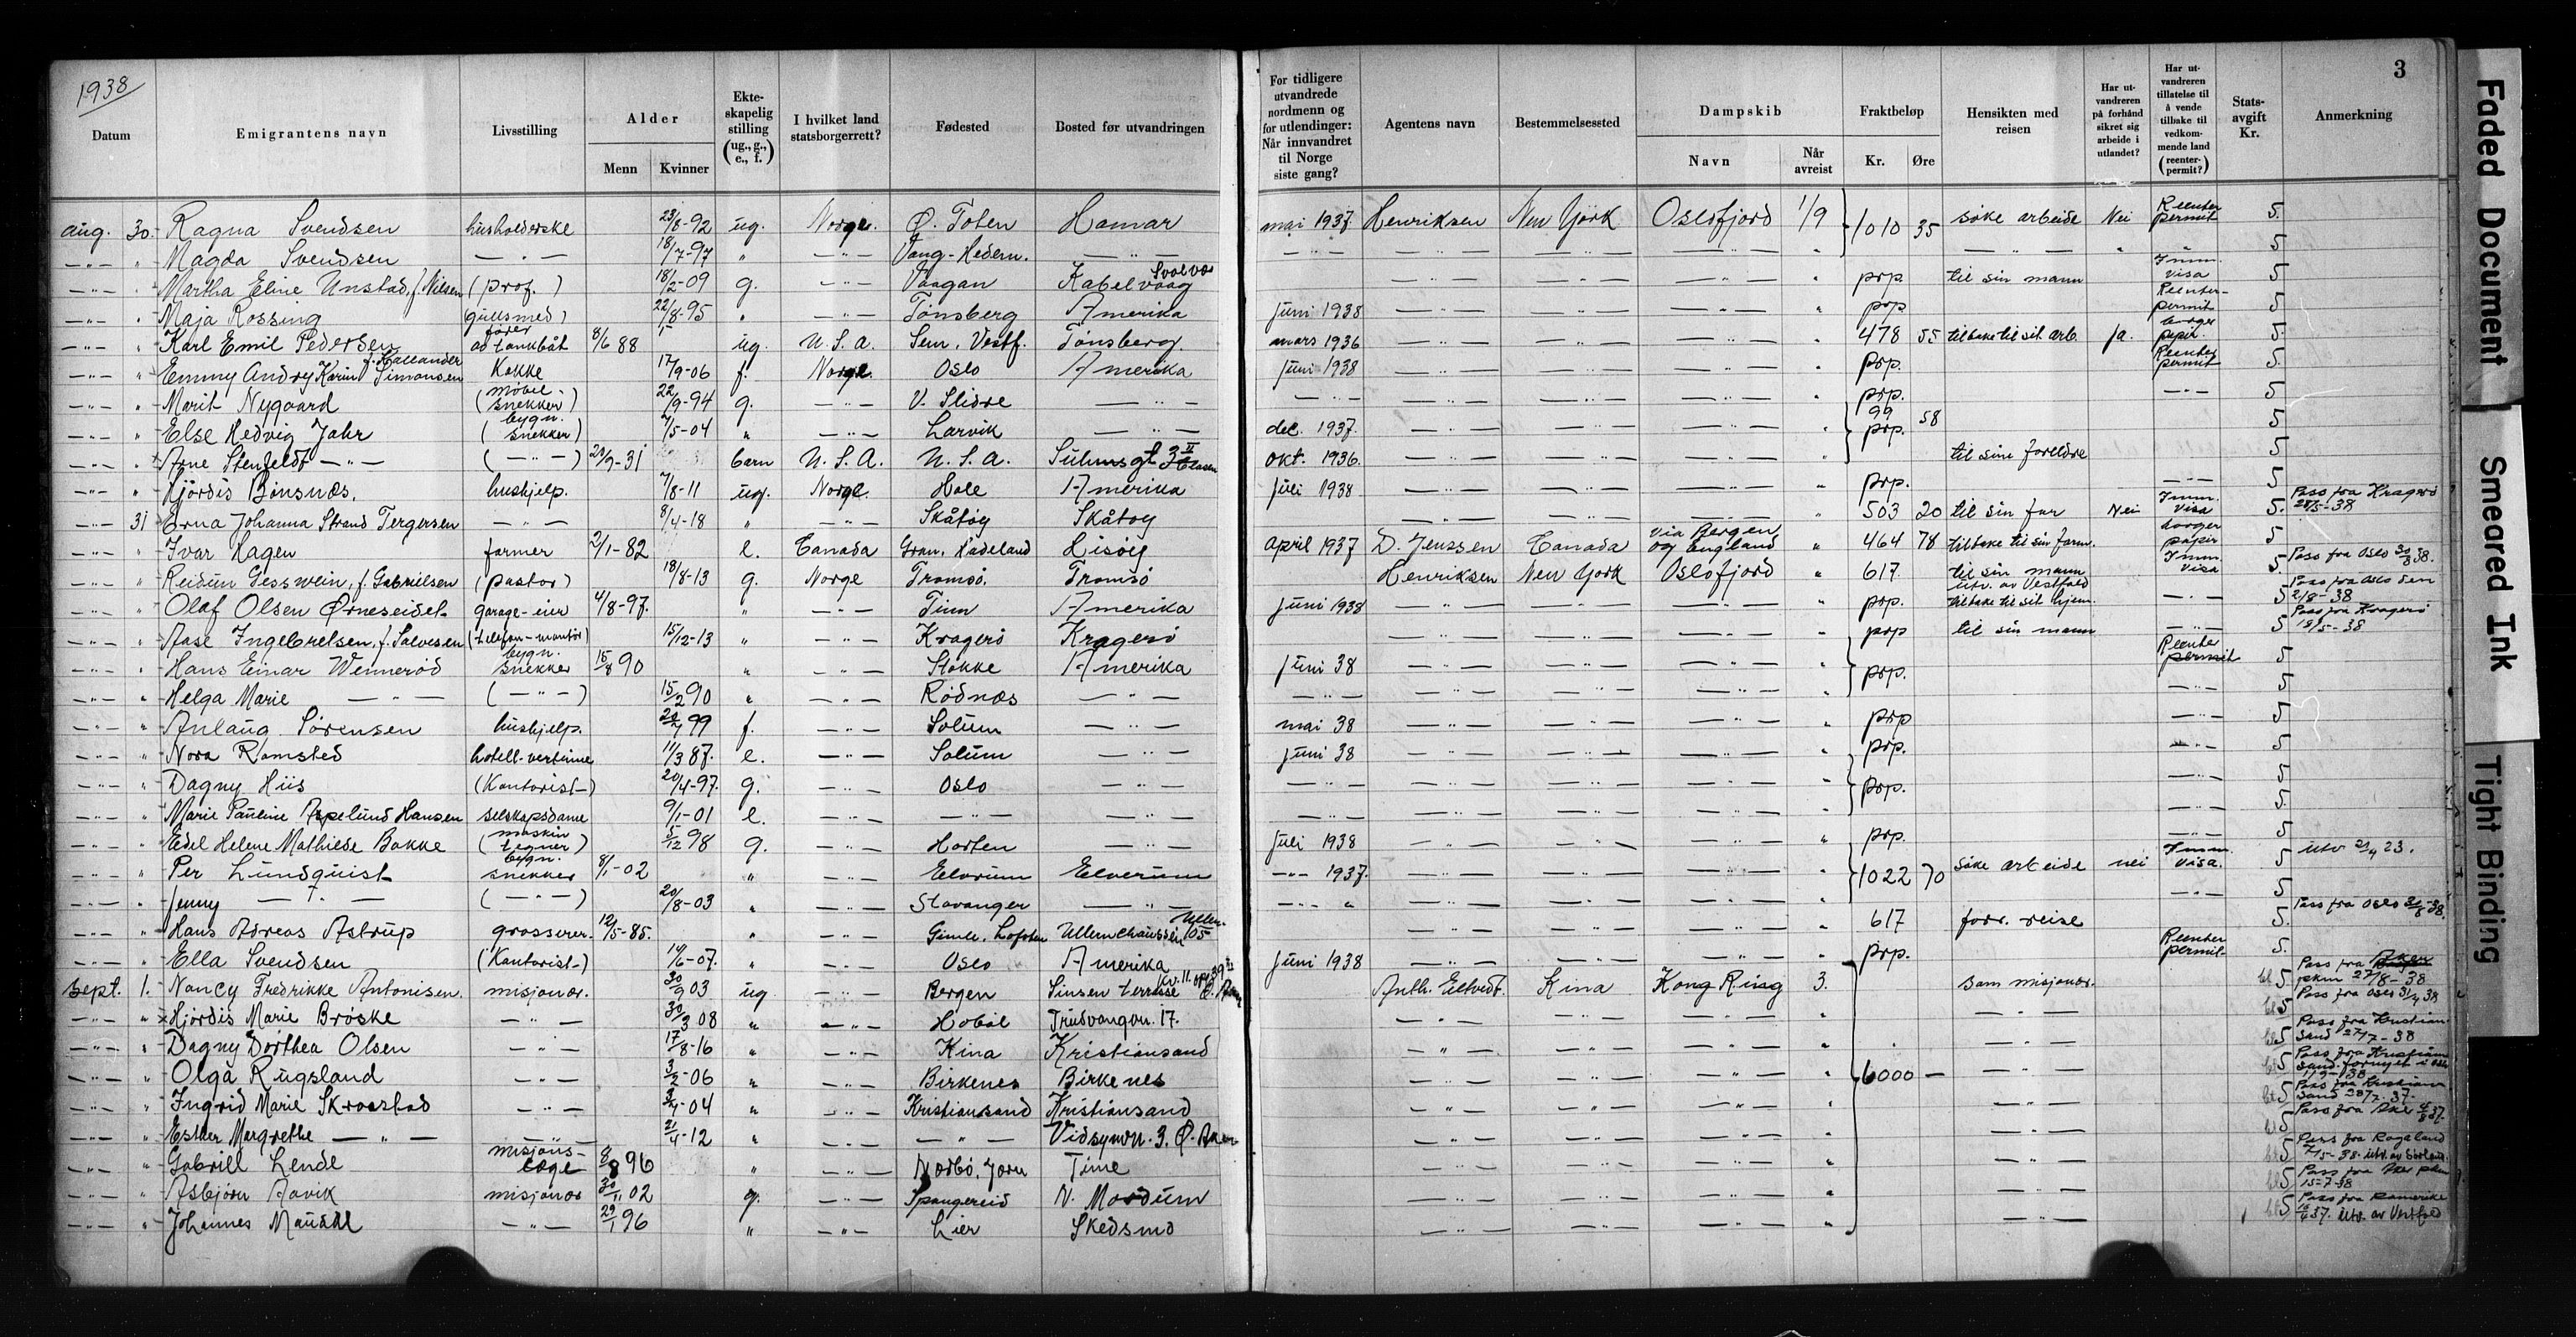 1938
3
Datum
Emigrantens navn
Livsstilling
Alder
Menn
Kvinner
Ekte-
skapelig
stilling
(ug., g.,
e., f.)
I hvilket land
statsborgerrett?
Fødested
Bosted før utvandringen
For tidligere
utvandrede
nordmenn og
for utlendinger:
Når innvandret
til Norge
siste gang?
Agentens navn
Bestemmelsessted
Dampskib
Navn
Når
avreist
Fraktbeløp
Kr.
Øre
Hensikten med
reisen
Har ut-
vandreren
på forhånd
sikret sig
arbeide i
utlandet?
Har ut-
vandreren
tillatelse til
å vende
tilbake til
vedkom-
mende land
(reenter-
permit?)
Stats-
avgift
Kr.
Anmerkning
aug. 30. Ragna Svendsen husholderske 23/8-92 ug. Norge. Ø. Toten Hamar mai 1937 Henriksen New York Oslofjord 1/9 1010 35 søke arbeide Nei Reenter permit 5.
—"— " Magda Svendsen —"— 18/7-97 " —"— Vang-Hedem. —"— —"— —"— —"— —"— " —"— " " 5
—"— " Martha Eline Unstad, f. Nilsen (prof.) 18/2-09 g. —"— Vaagan Kabelvaag Svolvær —"— —"— —"— " prp. til sin mann Imm. visa 5
—"— " Maja Rossing (gullsmed) 22/8-95 " —"— Tønsberg Amerika Juni 1938 —"— —"— —"— " prp Reenter-permit 5
—"— " Karl Emil Pedersen fører av tankbåt 8/6 88 ug. U.S.A. Sem, Vestf. Tønsberg. mars 1936 —"— —"— —"— " 478 55 tilbake til sit arb. Ja. borger papir 5.
—"— " Emmy Andry Karin Simonsen f. Hallander Kokke 17/9-06 f. Norge. Oslo Amerika Juni 1938 —"— —"— —"— " prp. Reenter permit 5.
—"— " Marit Nygaard (møbel-snekker) 22/9-94 g. —"— V. Slidre —"— —"— —"— —"— —"— " prp. —"— 5
—"— " Else Hedvig Jahr (bygn. snekker) 7/5-04 " —"— Larvik —"— dec. 1937. —"— —"— —"— " 99 58 prp. 5
—"— " Arne Stenfeldt —"— (—"—) 9-31 barn U.S.A. U.S.A. Suhmsgt okt. 1936. —"— —"— —"— " til sine foreldre 5
—"— " Hjørdis Bønsnæs. hushjelp. 7/8-11 ug. Norge. Hole Amerika Juli 1938 —"— —"— —"— " prp. —"— 5
—"— 31 Erna Johanna Strand Tergersen —"— 8/4-18 " —"— Skåtøy Skåtøy —"— —"— —"— " 503 20 til sin far Nei Imm. visa 5. Pass fra Kragerø 28/5-38
—"— " Ivar Hagen farmer 2/1-82 e. Canada Gran, Hadeland Hisøy April 1937 D. Jenssen Canada via Bergen og England " 464 78 tilbake til sin farm. borger papir 5
—"— " Reidun Gesswein, f. Gabrielsen (pastor) 18/8-13 g. Norge Tromsø. Tromsø Henriksen New York Oslofjord " 617. til sin mann utv. av Vestfold Imm. visa 5. Pass fra Oslo 38.
—"— " Olaf Olsen Ørneseidet garage-eier 4/8-97. " —"— Tinn Amerika Juni 1938 —"— —"— —"— " prp. tilbake til sit hjem. —"— 5 Pass fra Oslo den 2/8-38
—"— " Aase Ingebretsen, f. Salvesen (telefon-montør) 15/12-13 " —"— Kragerø Kragerø —"— —"— —"— " prp til sin mann —"— 5 Pass fra Kragerø 18/5-38
—"— " Hans Einar Wennerød bygn. snekker 15/8 90 " —"— Stokke Amerika Juni 38 —"— —"— —"— " prp. Reenter permit 5
—"— " Helga Marie —"— (—"—) 15/2 90 " —"— Rødnæs —"— —"— —"— —"— —"— " —"— 5
—"— " Anlaug Sørensen hushjelp. 20/7 99 f. —"— Solum —"— mai 38 —"— —"— —"— " prp —"— 5
—"— " Nora Ramsted hotell-vertinne 11/3 87. e. —"— Solum —"— Juni 38 —"— —"— —"— " prp. —"— 5
—"— " Dagny Hiis (Kontorist) 20/4-97. g. —"— Oslo —"— —"— —"— —"— —"— " prp. —"— 5
—"— " Marie Pauline Aspelund Hansen selskapsdame 9/1-01 e. —"— —"— —"— —"— —"— —"— —"— " 5.
—"— " Edel Helene Mathilde Bakke (maskin tegner) 5/12 98 g. —"— Horten —"— Juli 1938 —"— —"— —"— " prp. —"— 5
—"— " Per Lundquist bygn. snekker 8/1-02 " —"— Elverum Elverum —"— 1937. —"— —"— —"— " 1022 70 søke arbeide nei Imm. visa. 5 utv 21/4 23.
—"— " Jenny —"— (—"—) 20/8-03 " —"— Stavanger —"— —"— " —"— —"— —"— " —"— 5
—"— " Hans Adreas Astrup grosserer. 12/5-85. " —"— Gimle, Lofoten Ullernchausseen 105 Ullern —"— —"— —"— " 617 forr. reise 5. Pass fra Oslo 31/8-38.
—"— " Ella Svendsen (Kontorist) 14/6-07. " —"— Oslo Amerika Juni 1938 —"— —"— —"— " prp. Reenter permit 5.
Sept. 1. Nancy Fredrikke Antonisen. misjonær. 30/9 03 ug —"— Bergen Sinsen terrasse Anth. Eltvedt. Kina Kong Ring 3. som misjonær. 5 Pass fra Aker pkm 27/8-38
—"— " Hjørdis Marie Brøske —"— 30/3 08 " —"— Hobøl Trudvangvn. 17. —"— —"— —"— " —"— 5 Pass fra Oslo 38
—"— " Dagny Dorthea Olsen —"— 17/8-16 " —"— Kina Kristiansand —"— —"— —"— " —"— 5 Pass fra Kristian-sand 27/7-38
—"— " Olga Rugsland —"— 3/2-06 " —"— Birkenes Birkenes —"— —"— —"— " 6000 — —"— 5 Pass fra Kristian-sand. fornyet i Oslo 1/9-138
—"— " Ingrid Marie Skraastad —"— 04 " —"— Kristiansand Kristiansand —"— —"— —"— " —"— 5 Pass fra Kristian-sand 28/7-37.
—"— " Ester Margrethe —"— —"— 21/4-12 " —"— —"— Vidsynvn. 3. Ø. Aker —"— —"— —"— " —"— 5 Pass fra Aker 37.
—"— " Gabriel Lende misjons-læge 8/8 96 " —"— Nærbø, Jæren Time —"— —"— —"— " —"— 5 Pass fra Rogaland 7/5-38. utv. av Sørland.
—"— " Asbjørn Aavik misjonær 30/11 02 g. —"— Spangereid N. Mardum —"— —"— —"— " —"— 5 Pass fra Aker pkm 15-7-38
—"— " Johannes Mausæl —"— 29/1 96 " —"— Lier Skedsmo —"— —"— —"— " —"— 5 Pass fra Romerike 37. utv. av Vestfold
Faded Document
Smeared Ink
Tight Binding